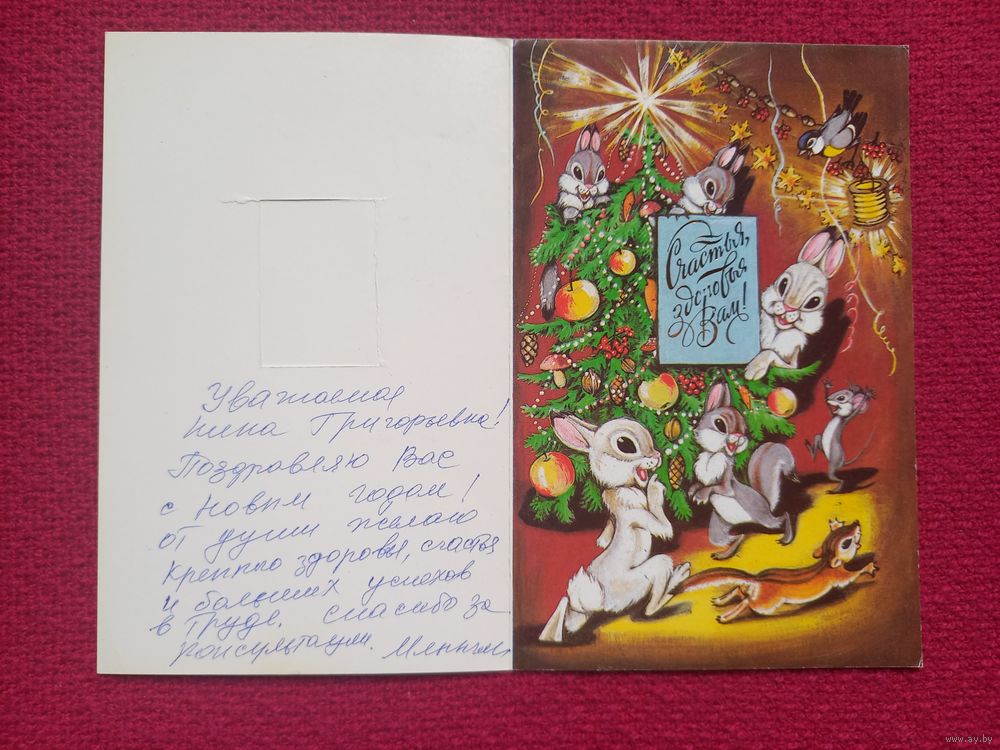 Уважаемая
Нина Григорьевна!
Поздравляю Вас
с Новым годом!
от души желаю
крепкого здоровья, счастья
и больших успехов
в труде. Спасибо за
консультации.
Счастья,
здоровья
Вам!
www.ay.by